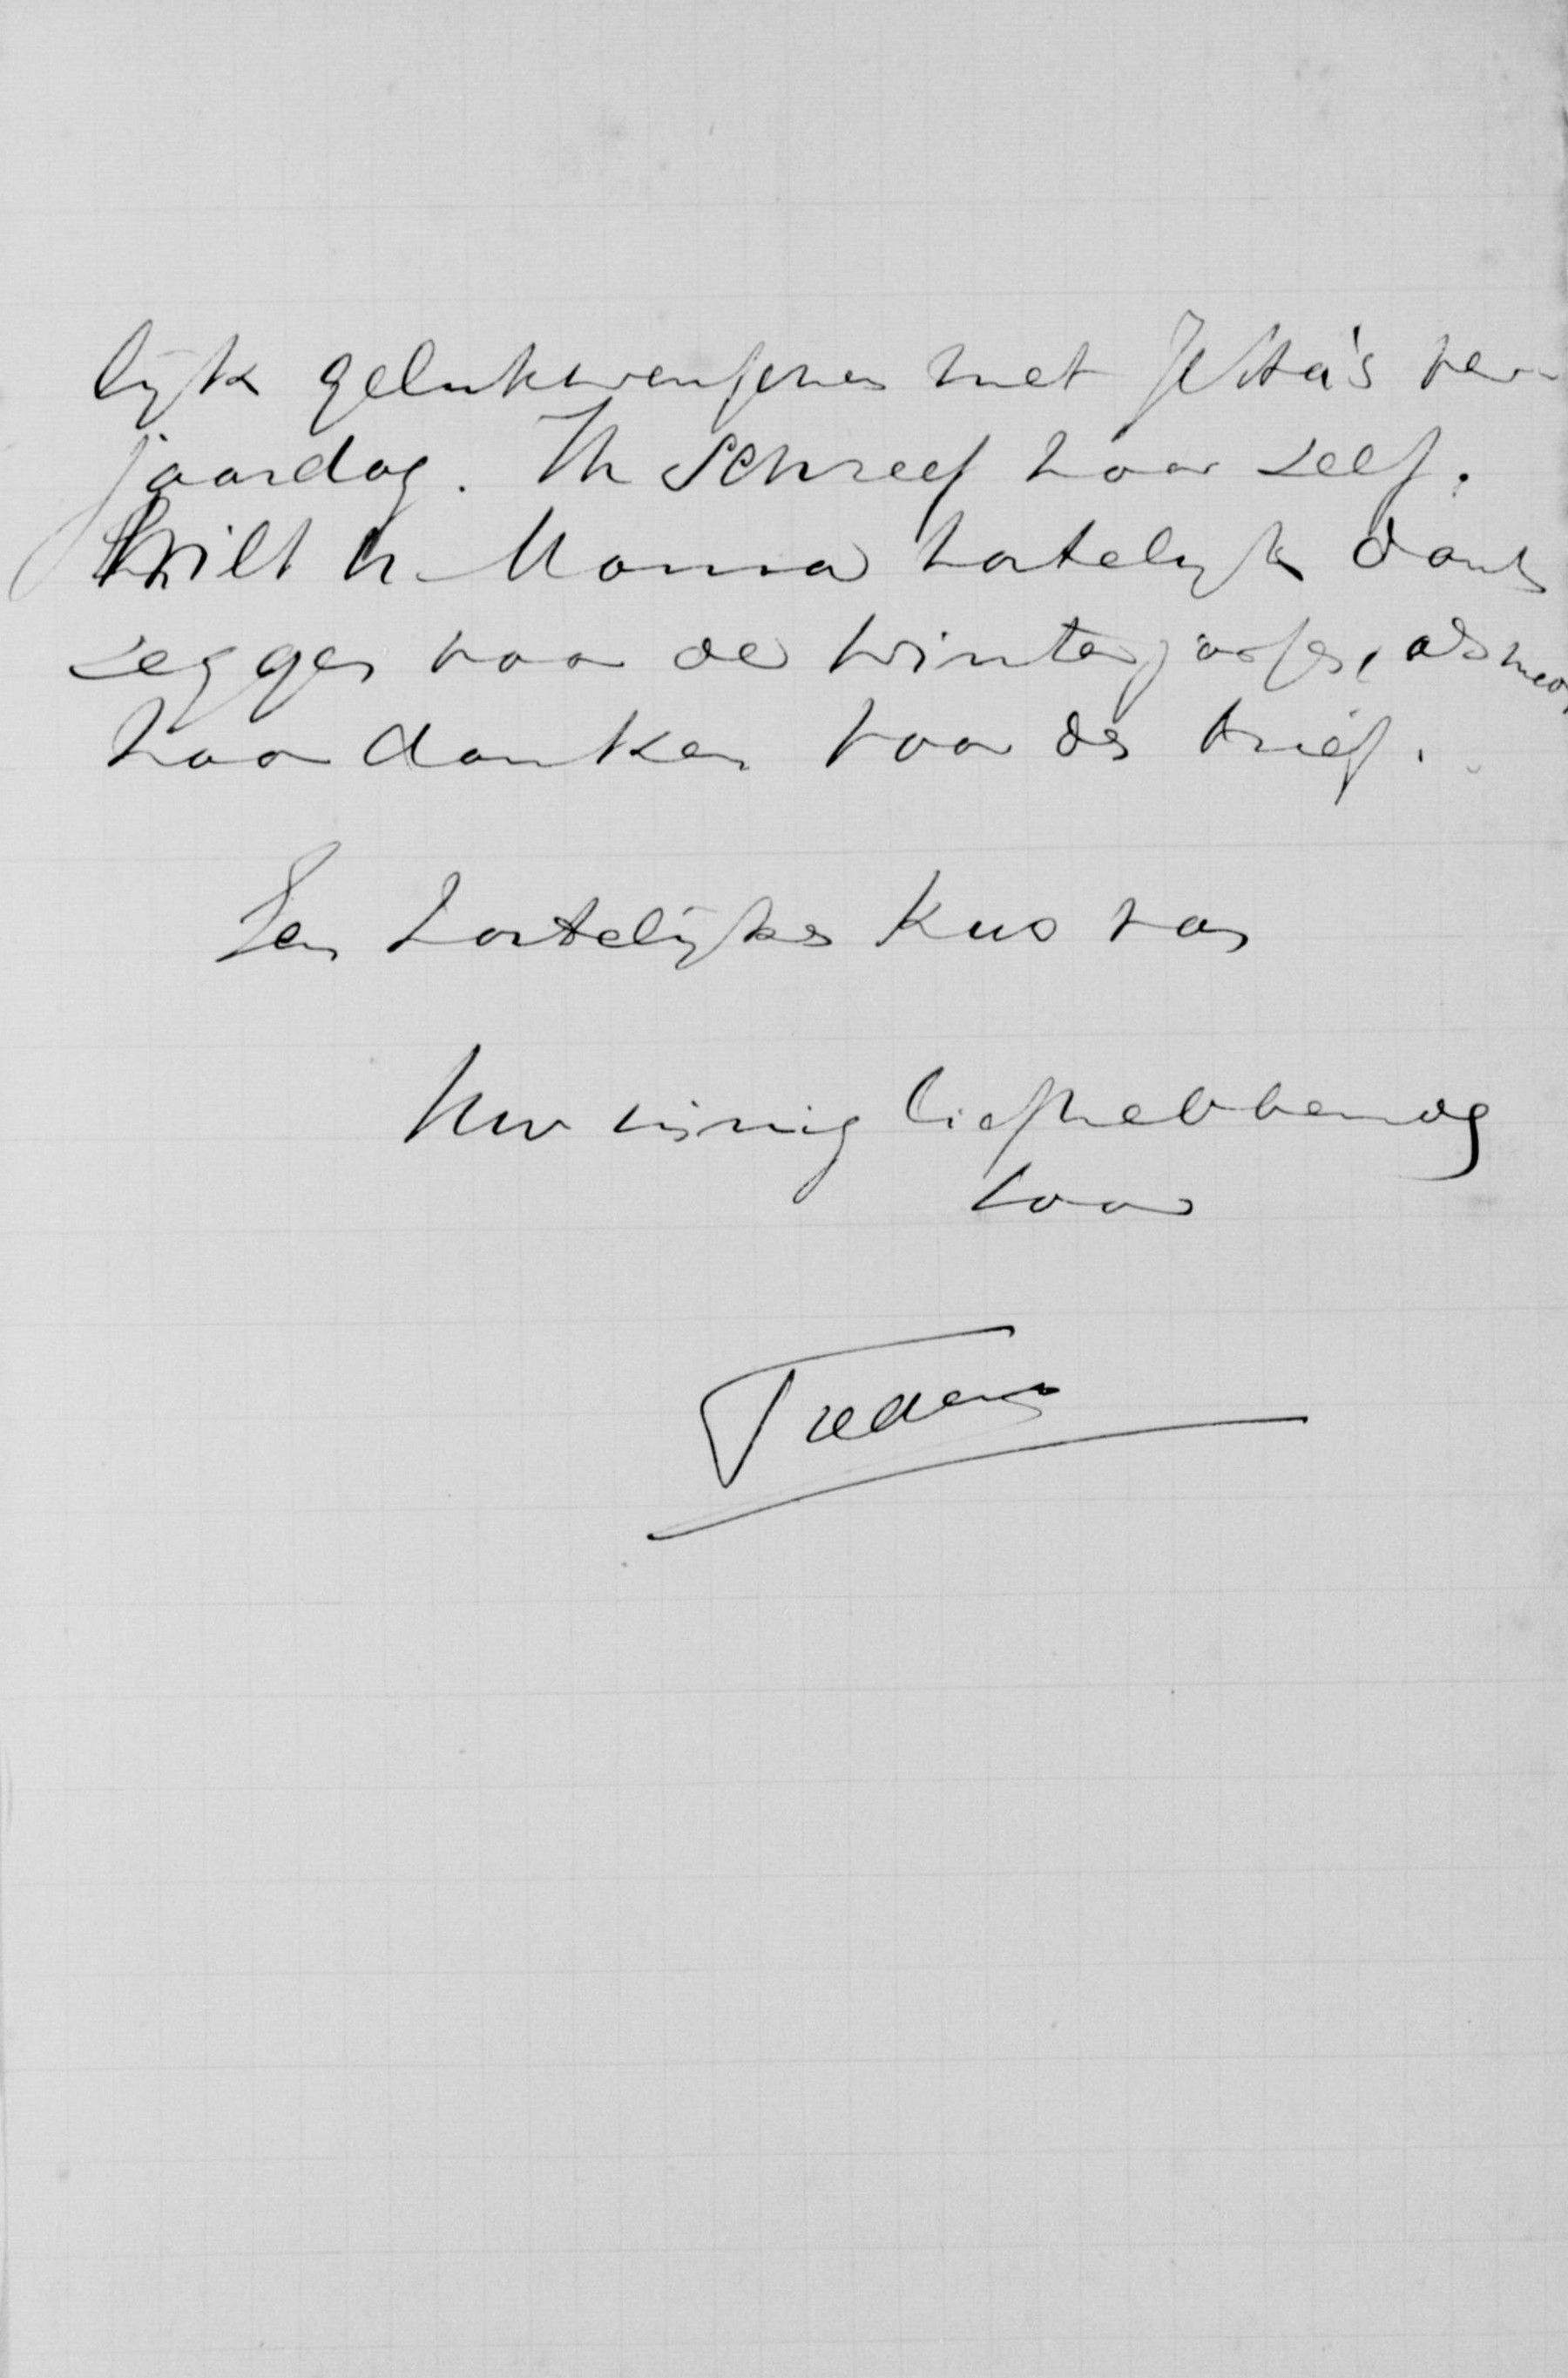 lijk gelukwenschen met Jetta's ver-
jaardag. Ik schreef haar zelf.
Wilt U Mama hartelijk dank
zeggen voor de winterjasjes, alsmede
haar danken voor de brief.
Een hartelijke kus van
Uw innig liefhebbende
zoon